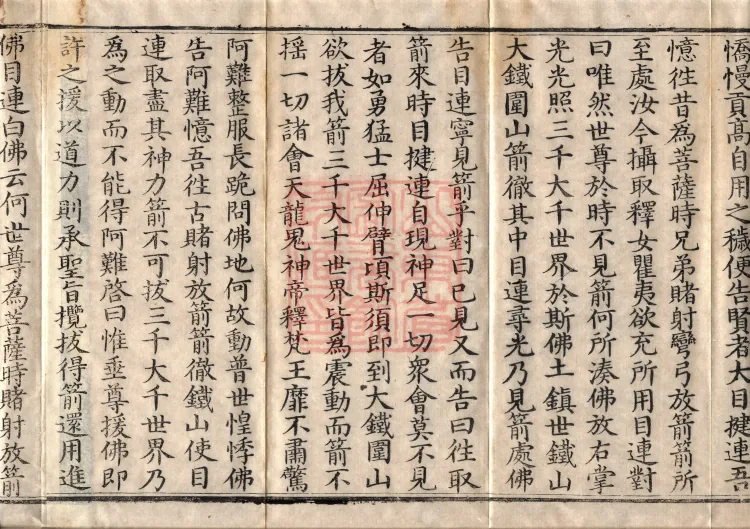 憍慢貢高自用之穢便告賢者大目揵連吾
憶徃昔為菩薩時兄弟賭射彎弓放箭箭所
至處汝今攝取釋女瞿夷欲充所用目連對
曰唯然世尊於時不見箭何所湊佛放右掌
光光照三千大千世界於斯佛土鎮世鐵山
大鐵圍山箭徹其中目連尋光乃見箭處佛
告目連寧見箭乎對曰已見又而告曰徃取
箭來時目揵連自現神足一切衆會莫不見
者如勇猛士屈伸臂頃斯須即到大鐵圍山
欲拔我箭三千大千世界皆為震動而箭不
揺一切諸會天龍鬼神帝釋梵王靡不肅驚
阿難整服長跪問佛地何故動普世惶悸佛
告阿難憶吾徃古賭射放箭箭徹鐵山使目
連取盡其神力箭不可拔三千大千世界乃
為之動而不能得阿難啓曰惟垂尊援佛即
許之援以道力則承聖旨攬拔得箭還用進
佛目連白佛云何世尊為菩薩時賭射放箭